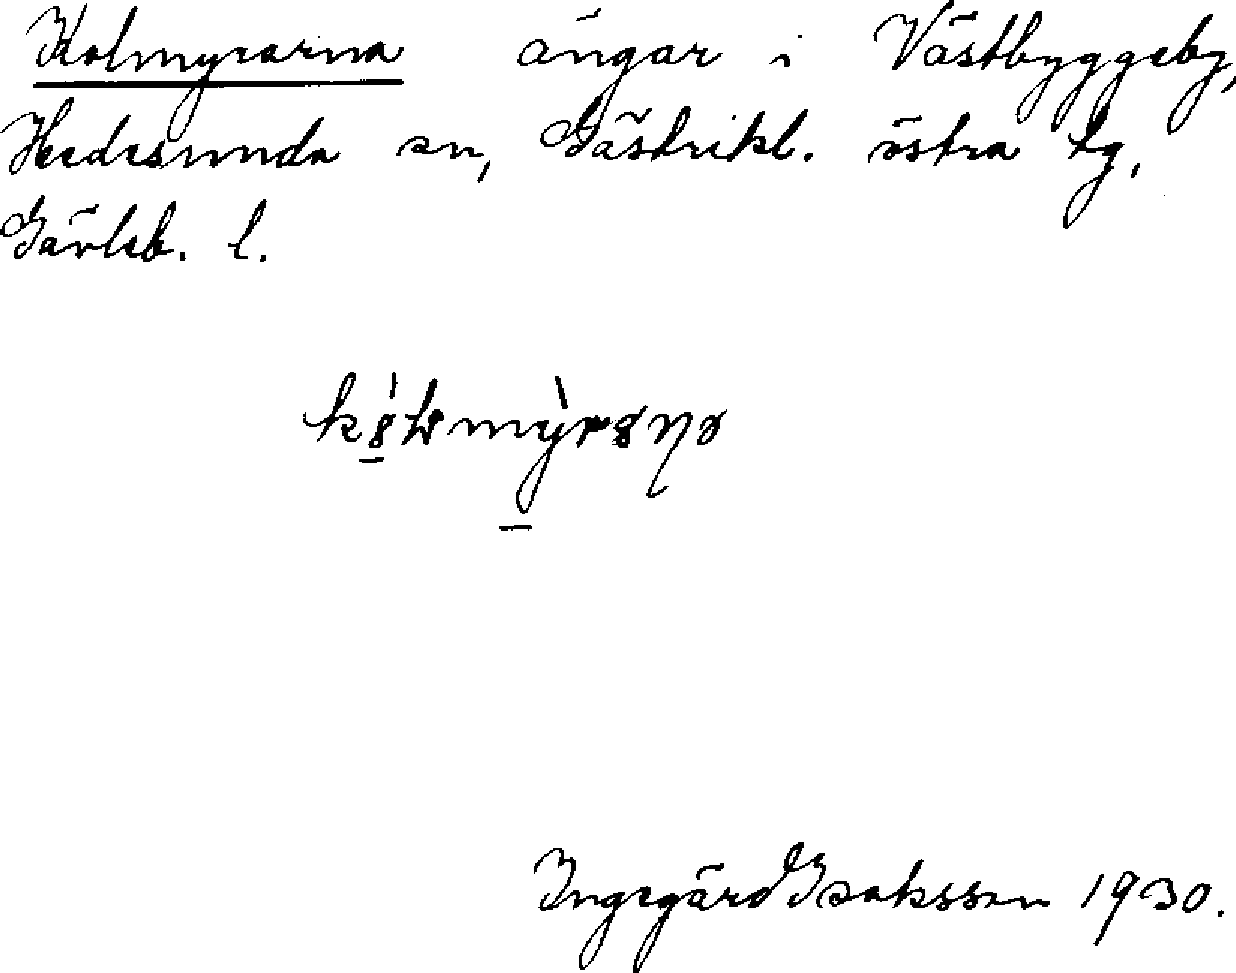 Kolmyrarna ängar i Västbyggeby,
Hedesunda sn, Gästrikl. östra tg,
Gävleb. l.
Ingegärd Isaksson 1930.